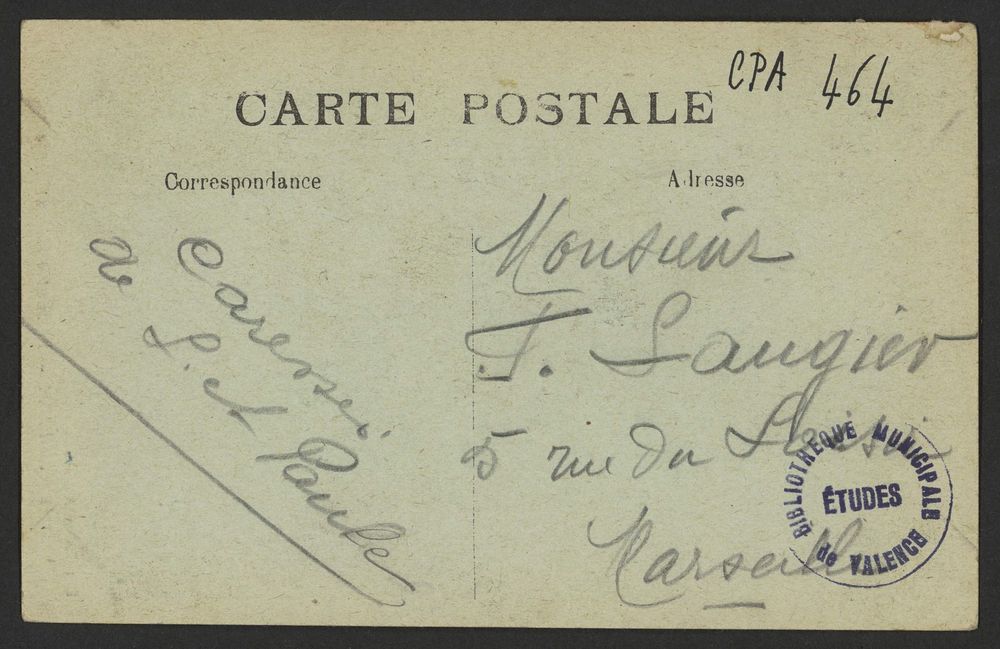 CARTE POSTALE
CPA 464
Correspondance
Adresse
Caresses
de L. et Paule
Monsieur
F. Laugier
5 rue du
Marseille
BIBLIOTHEQUE MUNICIPALE
ÉTUDES
de VALENCE